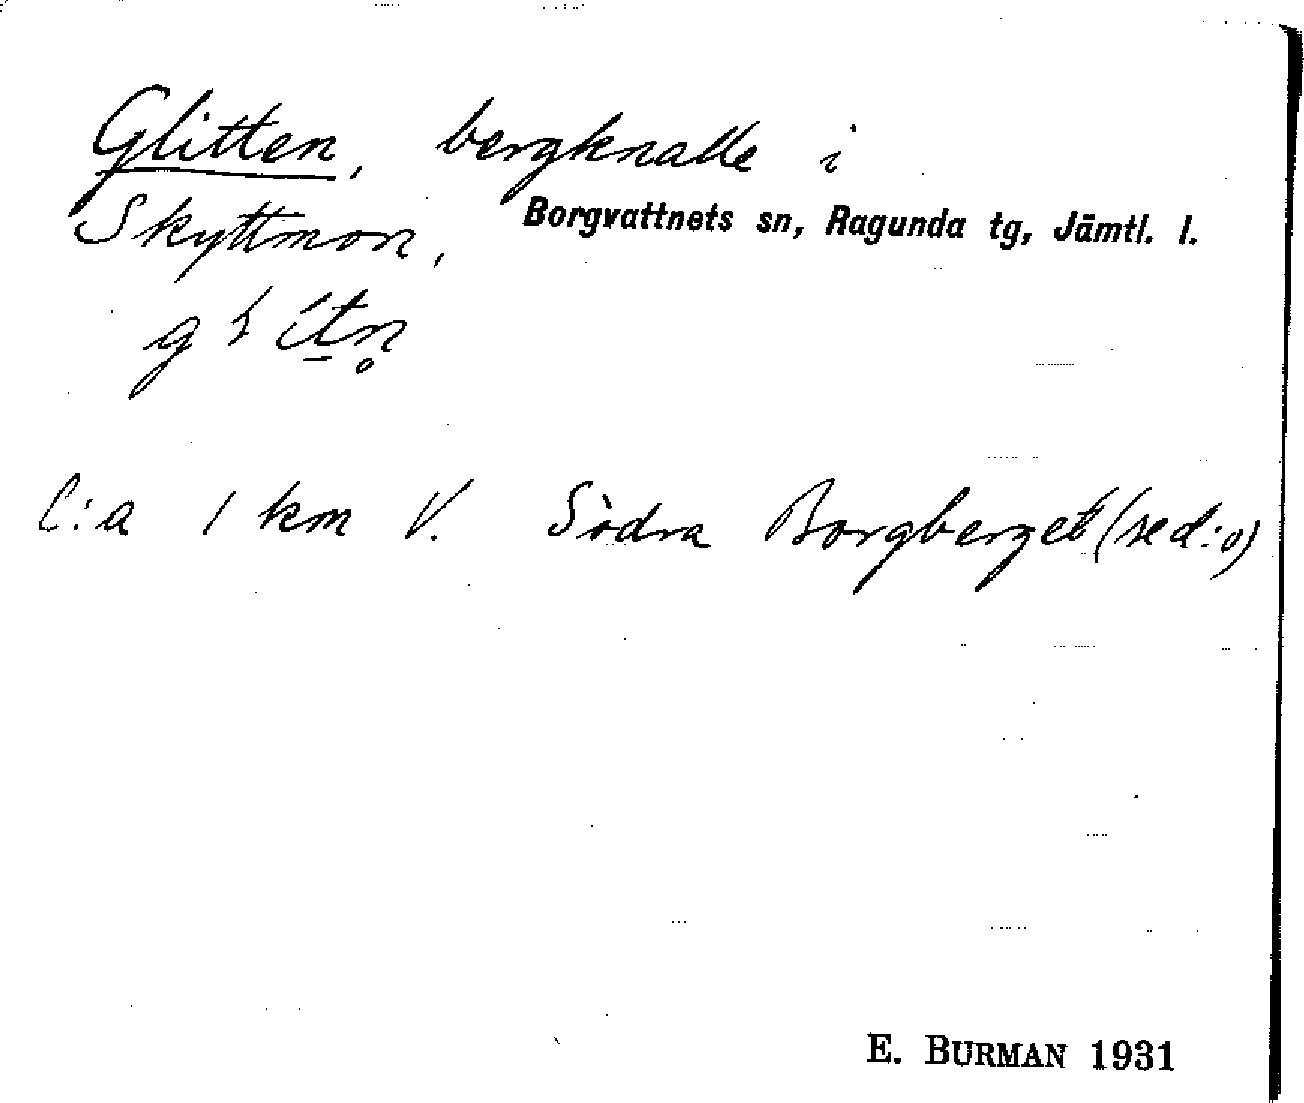 Glitten, bergknalle i
Skyttmon, Borgvattnets sn, Ragunda tg, Jämtl. l.
C:a 1 km V. Södra Borgberget (sed:o)
E. BURMAN 1931